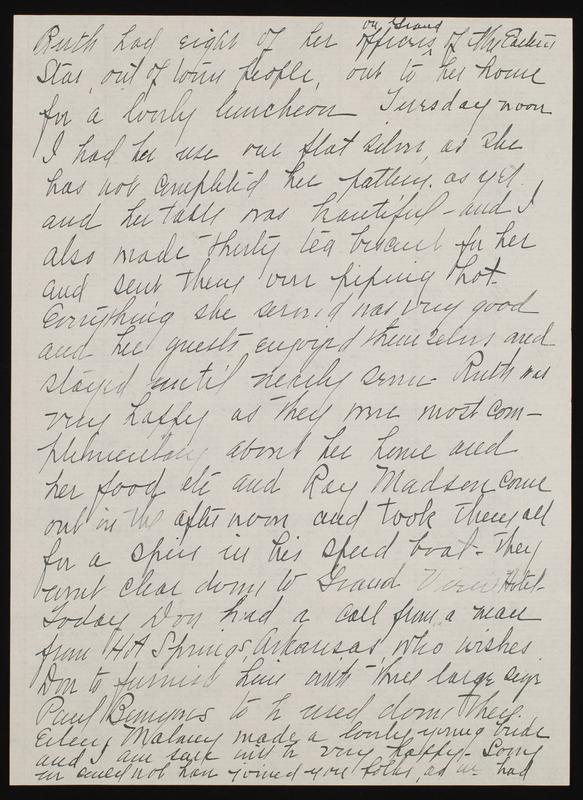 on Grand
Ruth had eight of her officers of the Eastern
Star, out of town people, out to her home
for a lovely luncheon Tuesday noon
I had her use our flat silver, as she
has not completed her pattern as yet
and her table was beautiful - and I
also made thirty tea biscuit for her
and sent them over piping hot.
Everything she served was very good
and her guests enjoyed themselves and
stayed until nearly seven. Ruth was
very happy as they were most com-
plimentary about her home and
her food etc and Ray Madsen came
out in the afternoon and took them all
for a spin in his speed boat - they
went clear down to Grand View Hotel.
Today Don had a call from a man
from Hot Springs, Arkansas who wishes
Don to furnish him with three large size
Paul Bunyons to be used down there.
Eileen Maloney made a lovely young bride
and I am sure will be very happy. Sorry
we could not have joined you folks, as we had